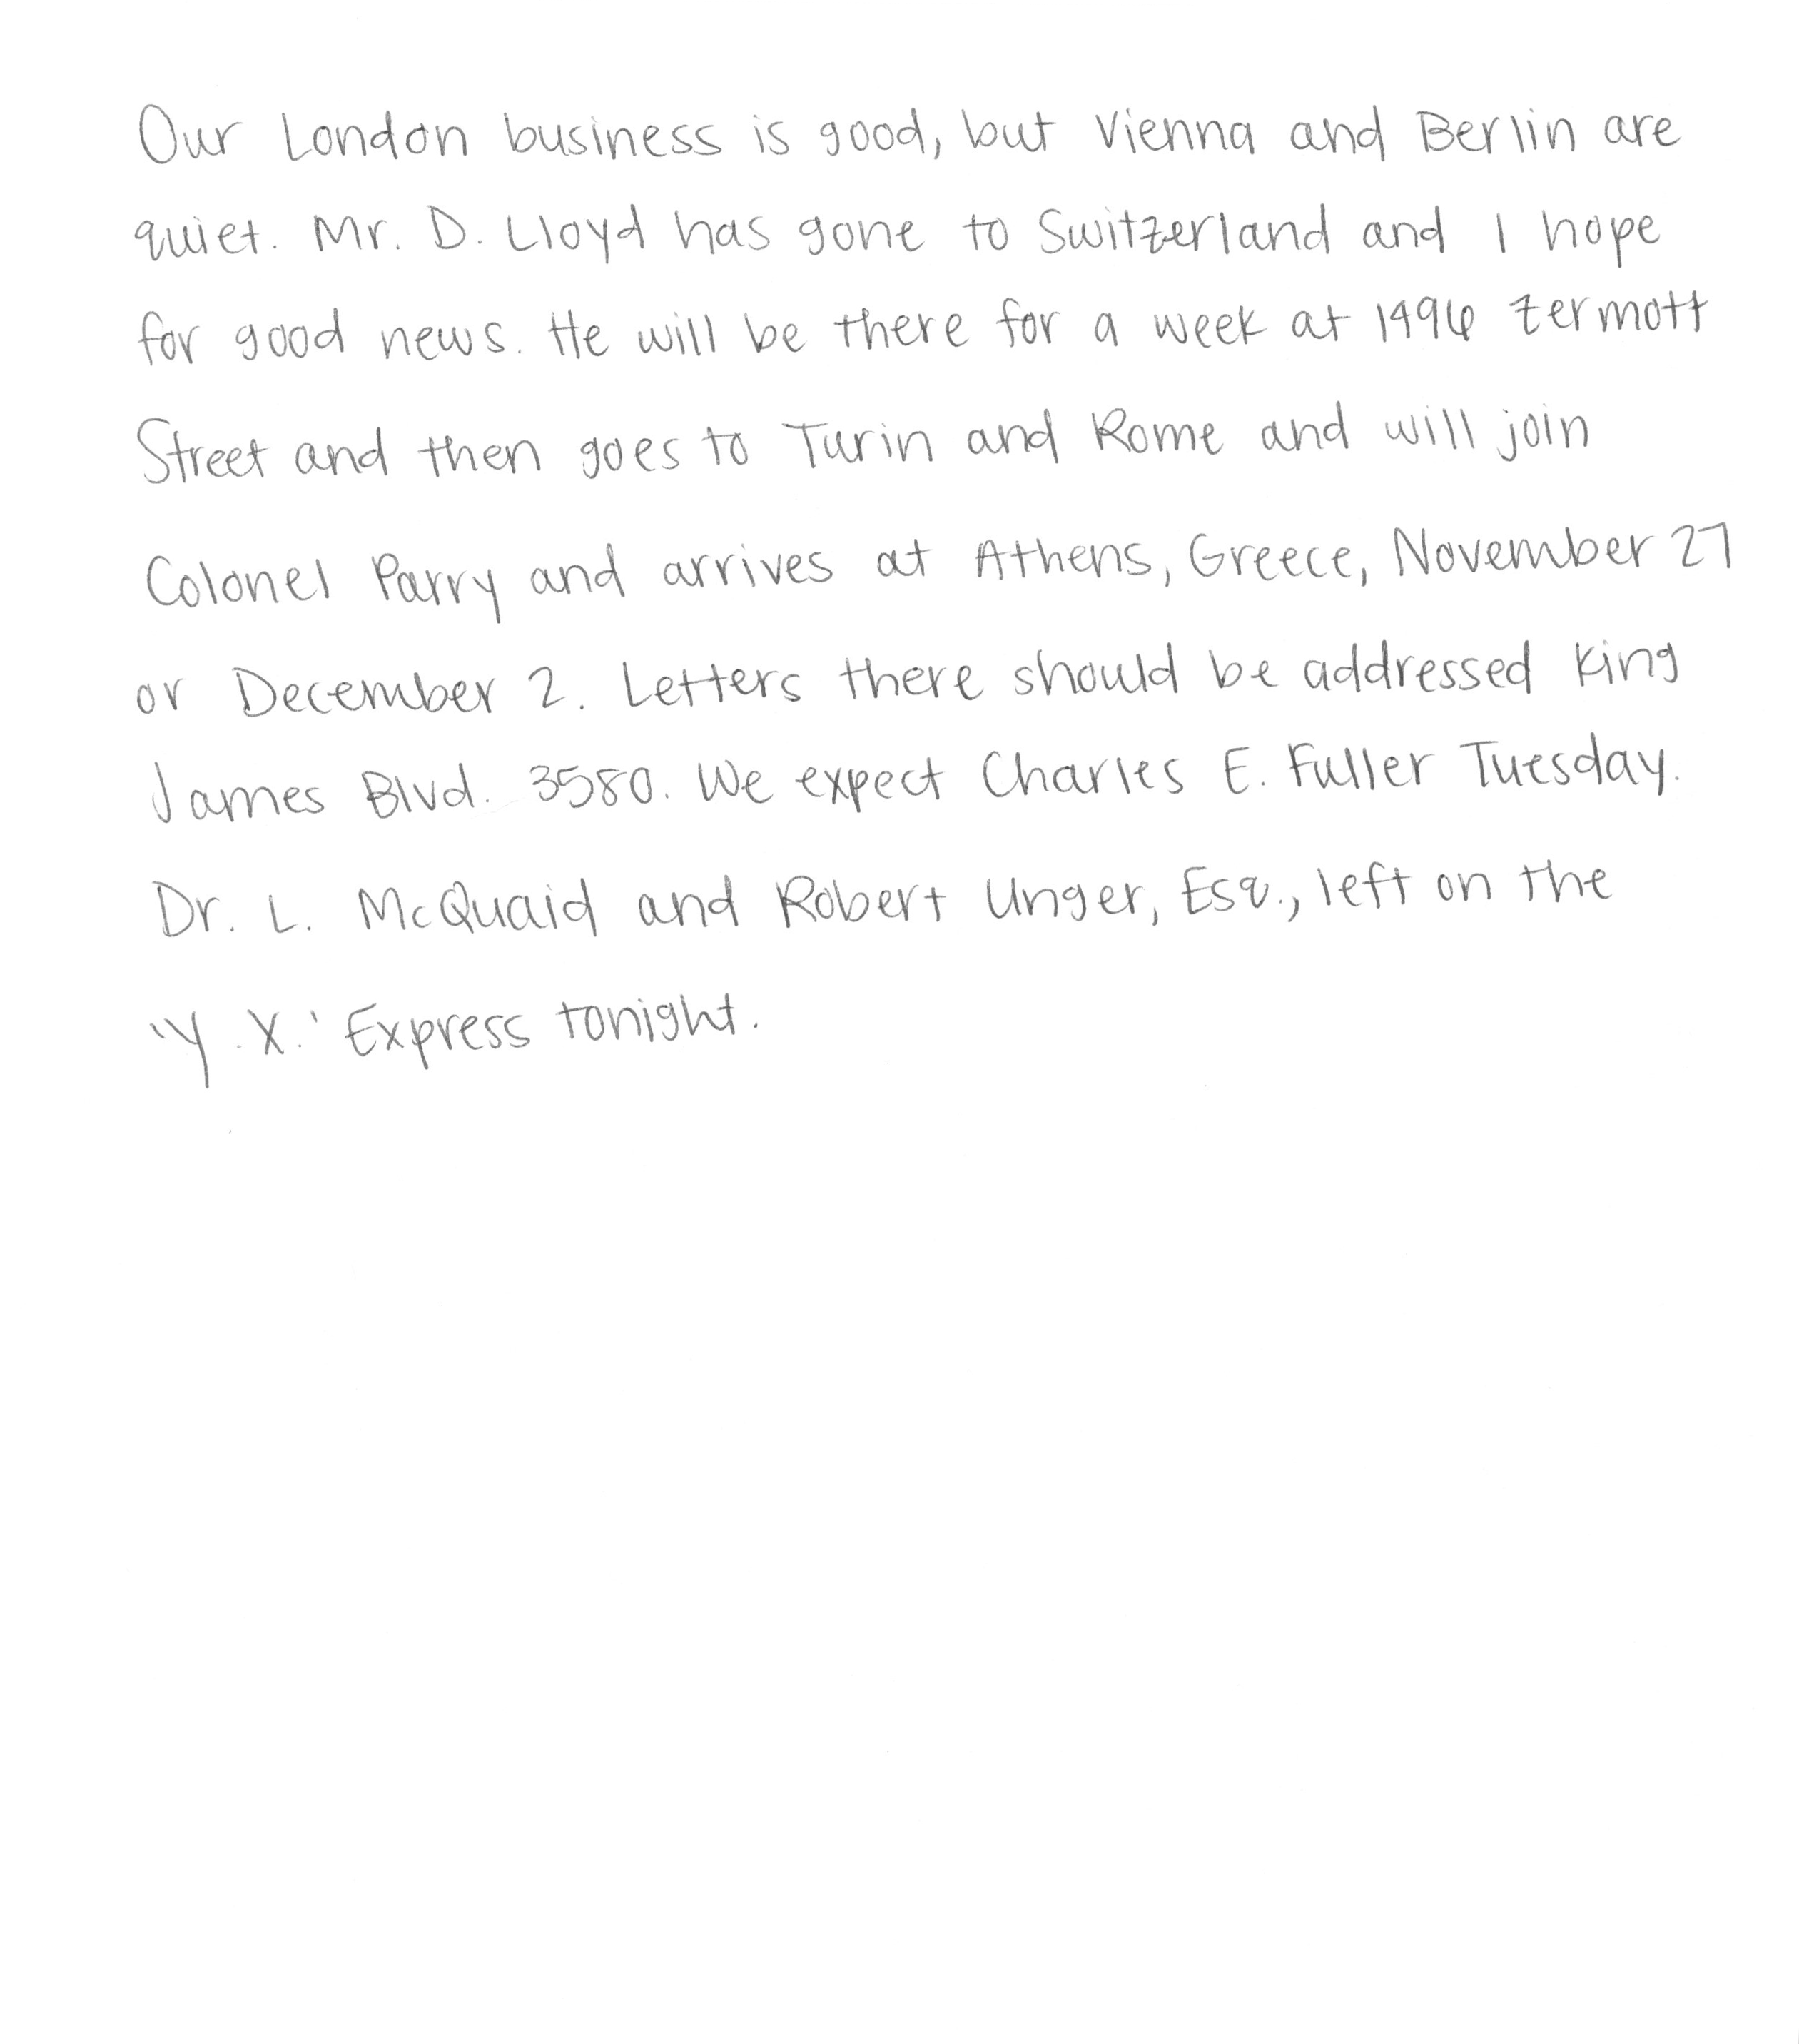 Our London business is good, but Vienna and Berlin are
quiet. Mr. D. Lloyd has gone to Switzerland and I hope
for good news. He will be there for a week at 1496 Zermott
Street and then goes to Turin and Rome and will join
Colonel Parry and arrives at Athens, Greece, November 27
or December 2. Letters there should be addressed King
James Blvd. 3580. We expect Charles E. Fuller Tuesday.
Dr. L. McQuaid and Robert Unger, Esq., left on the
'Y.X.' Express tonight.